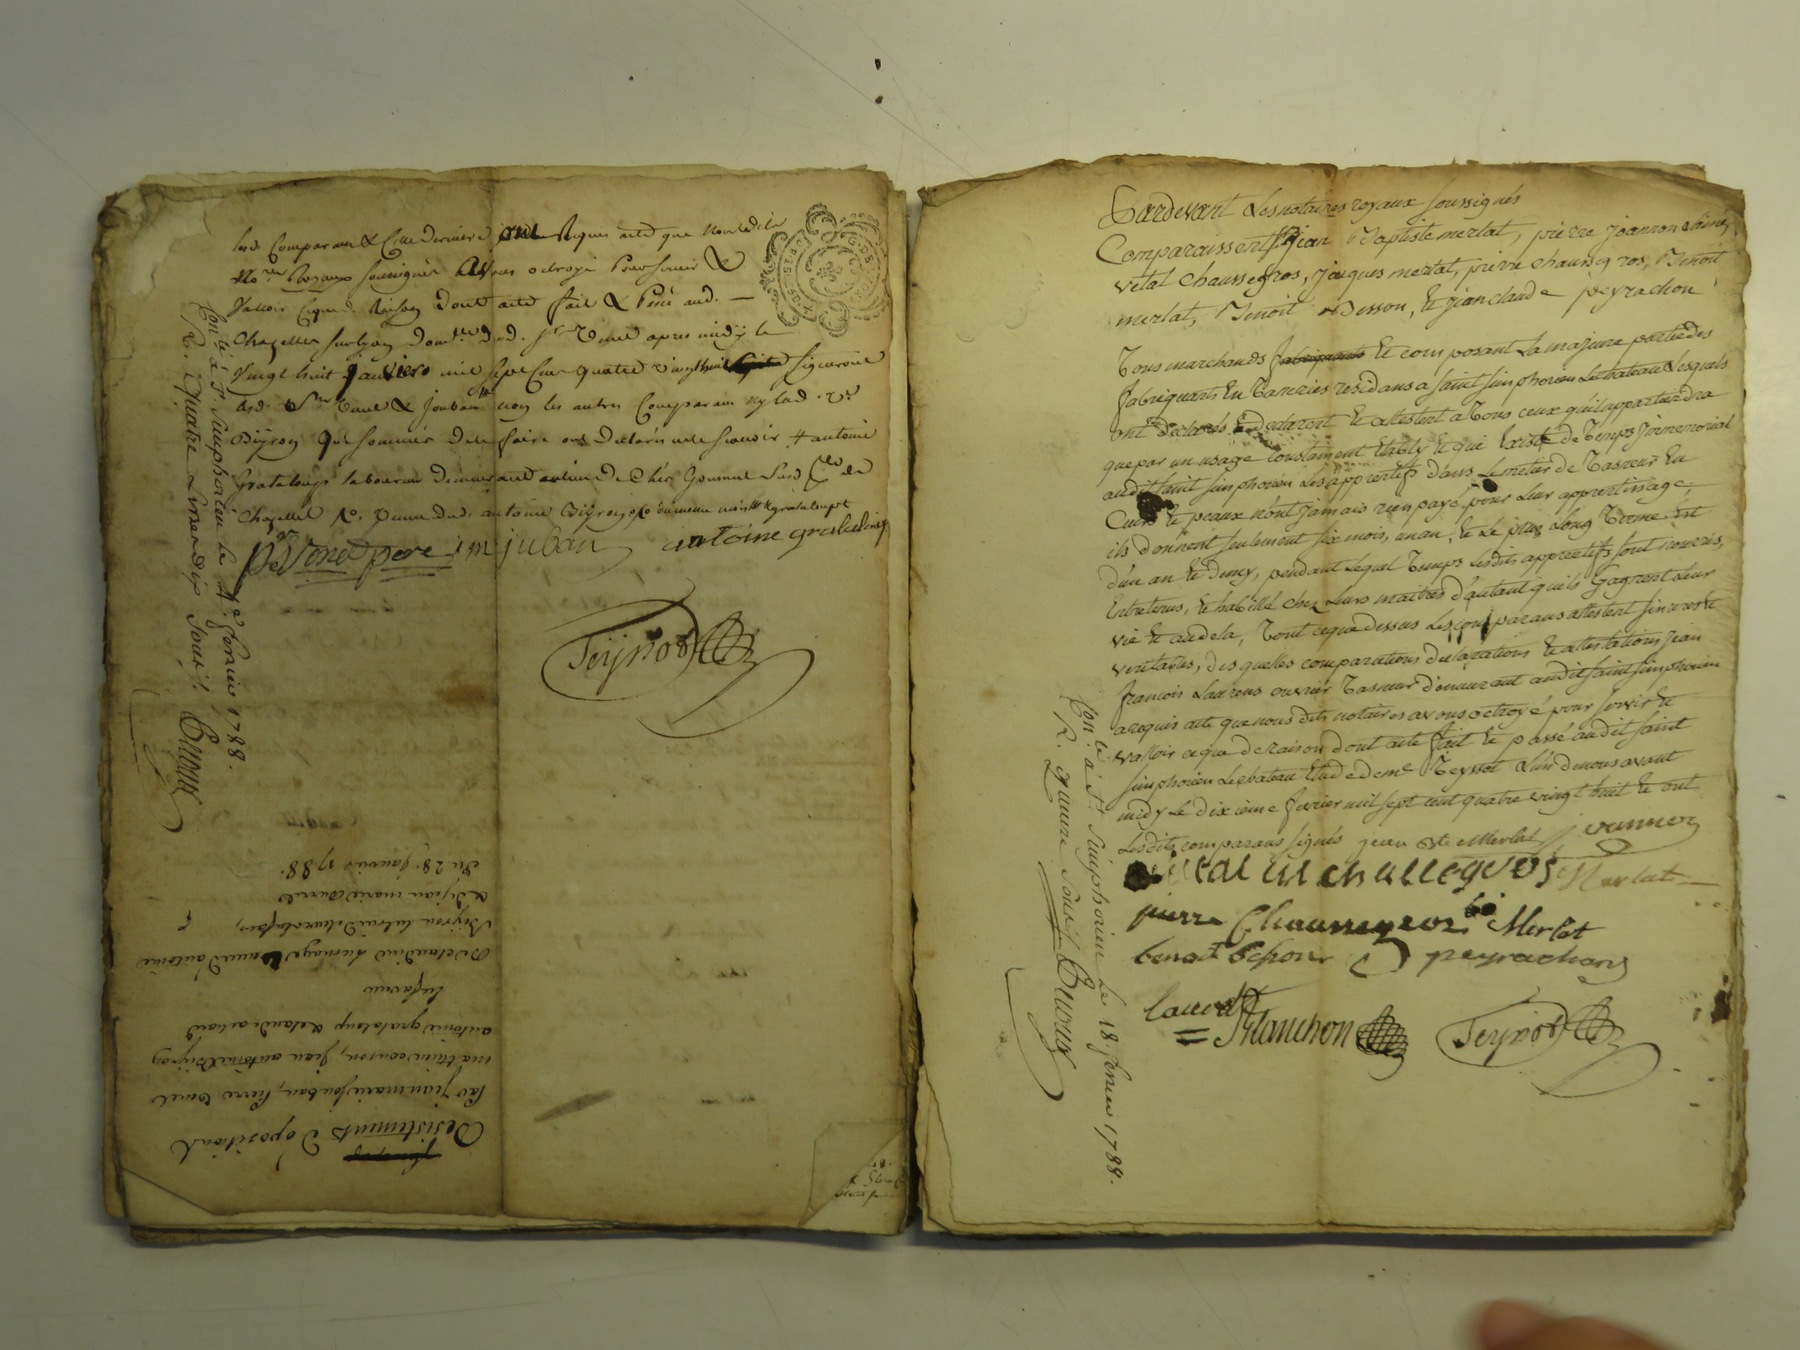 lesd. Comparans & Cette derniere ont Requis acte que nousdits
No.res Royaux soussignés Avons octroyé Pour servir &
Valloir Ceque d. Raison dont acte fait & Passé aud.
Chazelles sur lyon dom.le dud. s.r Venet apres midy le
Vingt huit janvier mil sept Cent quatre vingt huit signeront
lesd. Venet & Jouban non les autres Comparans ny lad. v.e
Biyron que sommés de le faire ont declarés ne le scavoir + antoine
Grataloup laboureur demeurant
Chazelles
venet pere jm juban antoine grataloup
Teyssot
Con.lé à St. Simphorien le 4.e fevrier 1788.
R. Quatre Livres dix sous.
Desistements d'opositions
par jean marie jouban, pierre venet
mathieu couson, jean antoine Biyron
antoine grataloup & claude achard
en faveur
De claudine Jurmaga veuve d'antoine
& de jean marie
Du 28. janvier 1788.
Pardevant Les notaires royaux soussignés
Comparaissent s.rs jean Baptiste merlat, pierre joannon ainé,
vital chaussegros, jacques merlat, pierre chaussegros, Benoit
merlat, Benoit Besson, et jean claude peyrachon
Tous marchands fabriquants et composant La majeure partie des
fabriquants En Taneries residans a saint simphorien Le chateau Lesquels
ont declarés declarent et attestent a Tous ceux qu'il appartiendra
que par un usage Constament Etably et qui Existe de Temps jmmemorial
audit saint simphorien Les apprentifs dans Le metier de Tanneur En
Cuirs et peaux n'ont jamais rien payé pour Leur apprentissage,
ils donnent seulement six mois, un an, et Le plus Long Terme est
d'un an et demy, pendant Lequel Temps Lesdits apprentifs sont nourris,
Entretenus, et habillé chez Leurs maitres d'autant qu'ils Gagnent Leur
vie et audela, Tout ceque dessus Les comparans attestent sincere et
veritables, des quelles comparutions declarations et attestations jean
francois Laurens ouvrier Tanneur demeurant audit saint simphorien
a requis acte que nous dits notaires avons octroyé pour servir et
valloir ce que de raison dont acte fait et passé audit saint
simphorien Le chateau Etude de m.e Teyssot L'un de nous avant
midy Le dixieme fevrier mil sept cent quatre vingt huit et ont
Lesdits comparans signés jean Bte Merlat joannon
vital chassegros Merlat
pierre Chaussegros B. Merlat
benoit besson peyrachon
Laurens
Blanchon Teyssot
Con.lé à St. Simphorien Le 18 fevrier 1788.
R. quinze sous.